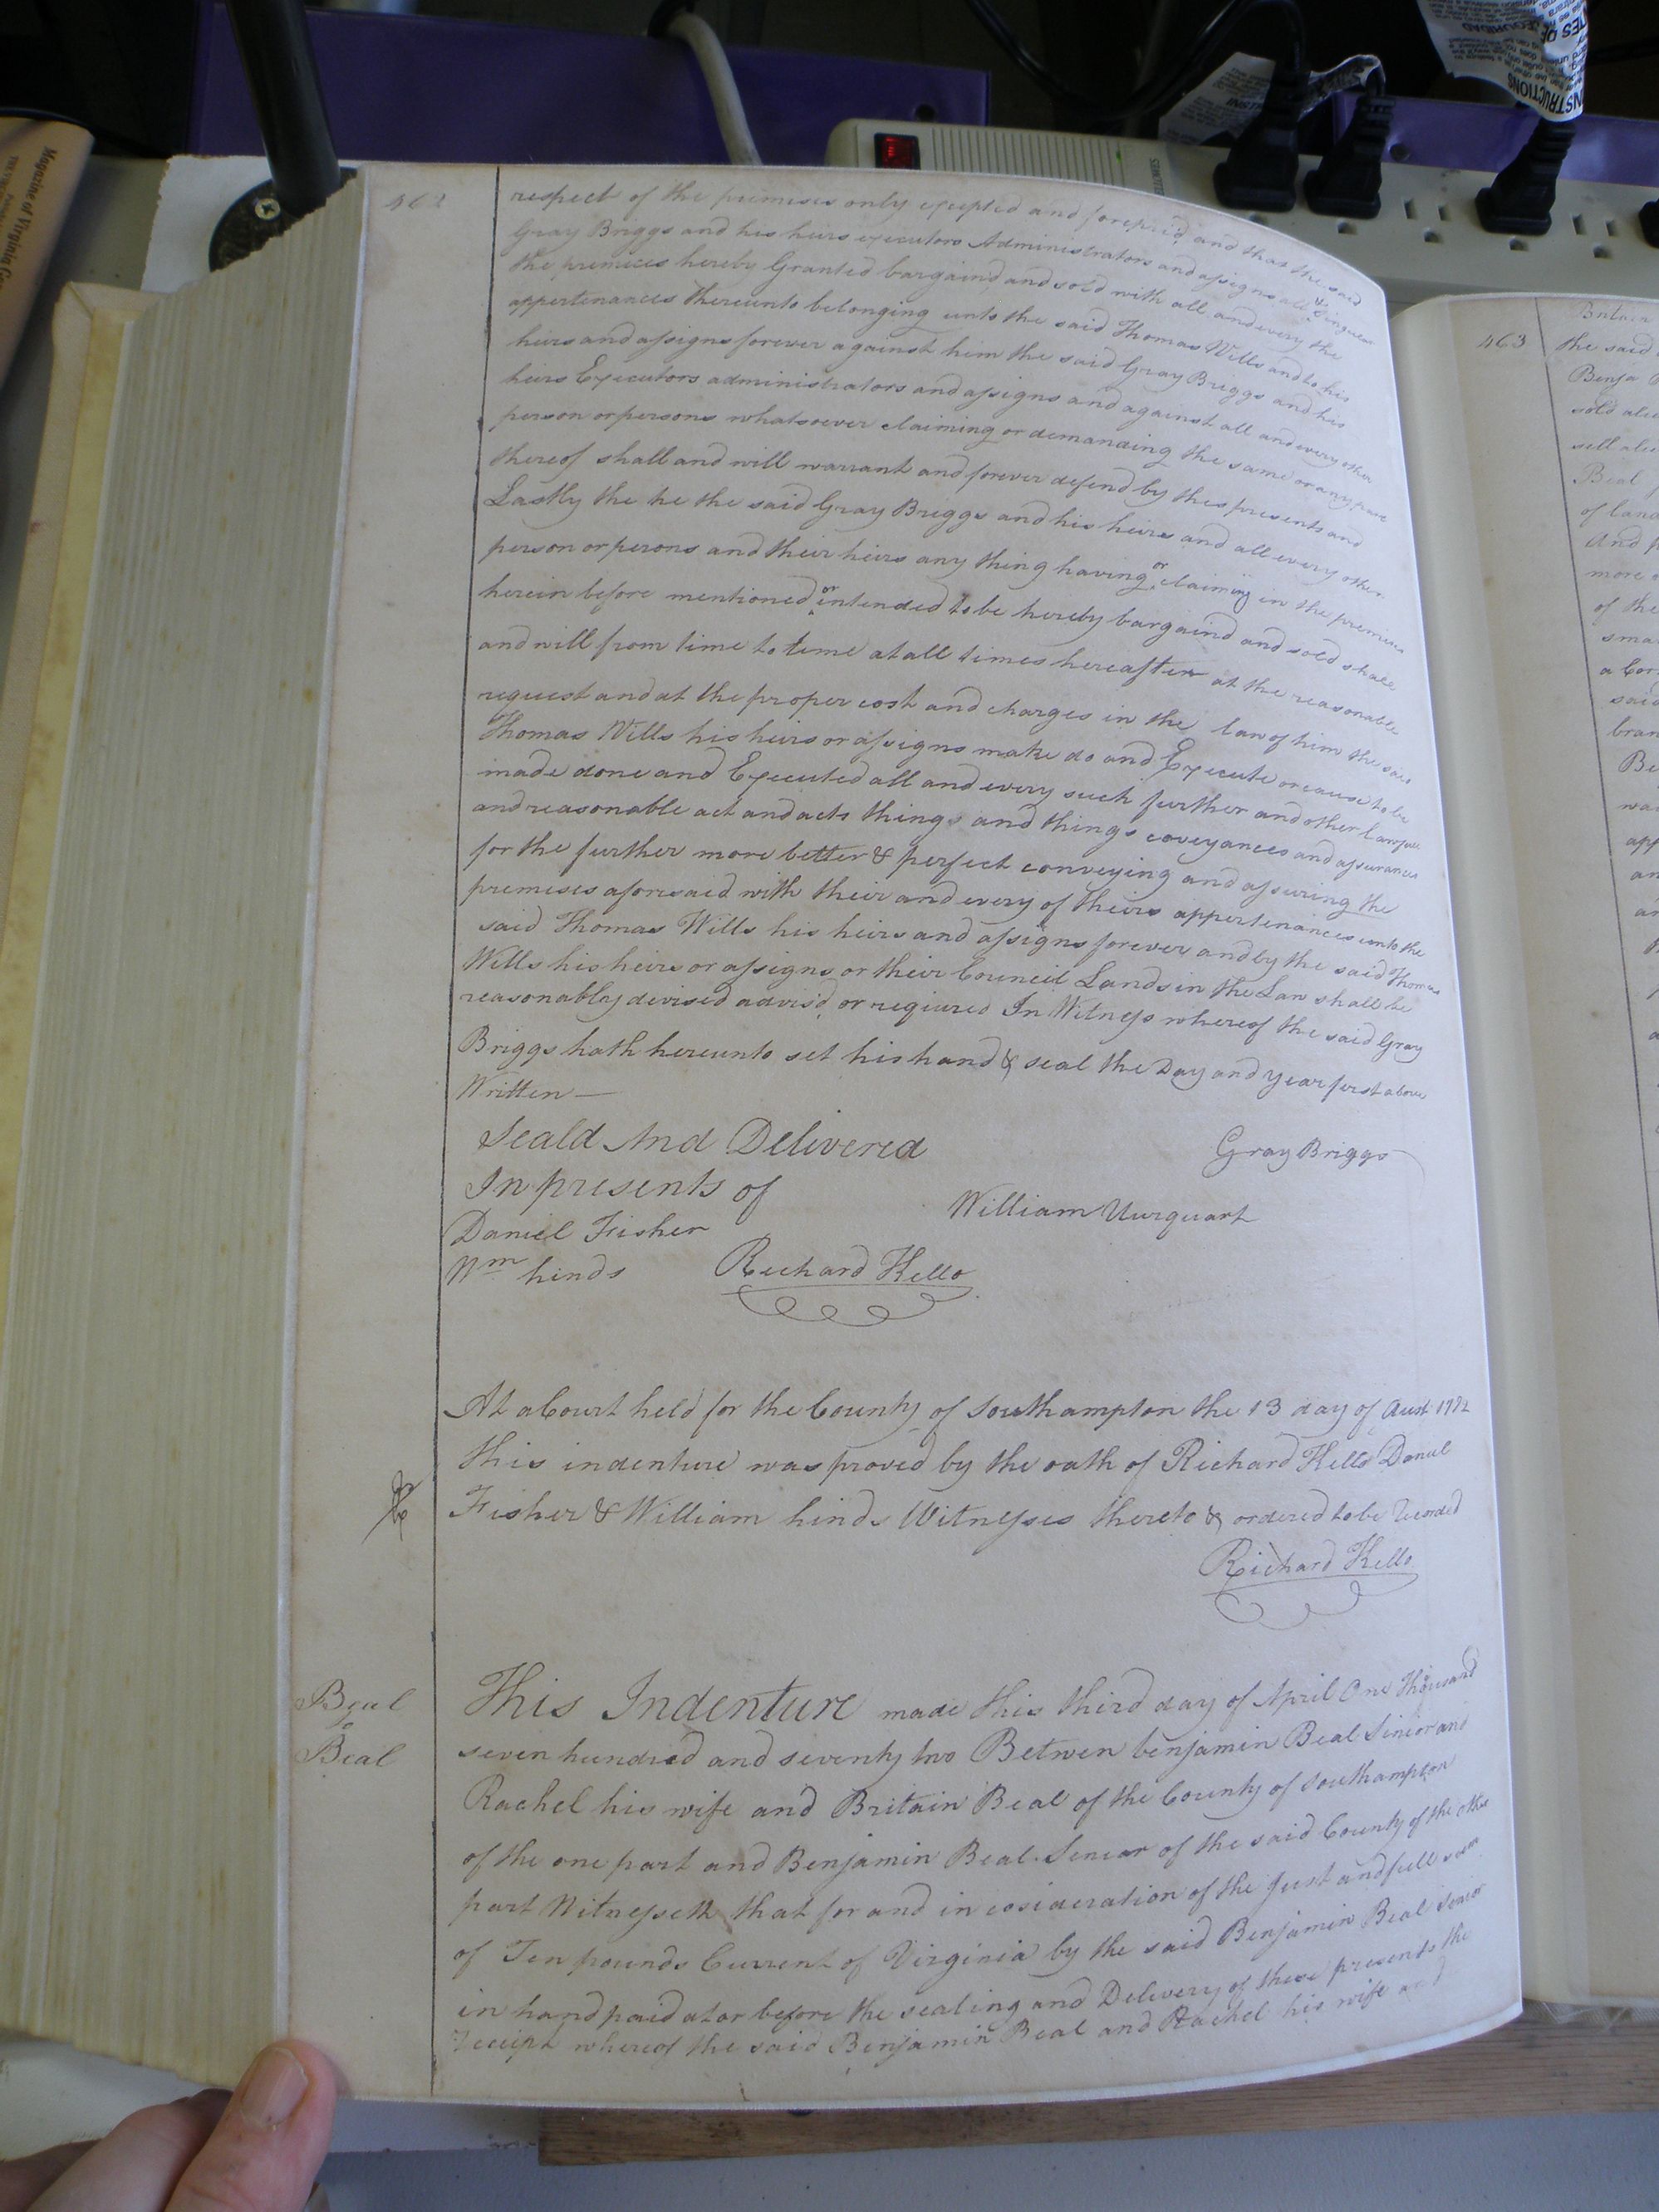 462
respect of the premises only excepted and foreprizd and that the said
Gray Briggs and his heirs executors Administrators and assigns all & singular
the premices hereby Granted bargaind and sold with all and every the
appertenances thereunto belonging unto the said Thomas Wills and to his
heirs and assigns forever against him the said Gray Briggs and his
heirs Executors administrators and assigns and against all and every other
person or persons whatsoever claiming or demanding the same or any part
thereof shall and will warrant and forever defend by thes presents and
Lastly the he the said Gray Briggs and his heirs and all every other
person or perons and their heirs any thing having or claiming in the premises
herein before mentioned or intended to be hereby bargaind and sold shall
and will from time to teme at all times hereafter at the reasonable
request and at the proper cost and charges in the law of him the said
Thomas Wills his heirs or assigns make do and Execute or cause to be
made done and Executed all and every such further and other lawfull
and reasonable act and acts things and things coveyances and assurances
for the further more better & perfect conveying and assuring the
premises aforesaid with their and every of theirs appertenances unto the
said Thomas Wills his heirs and assigns forever and by the said Thomas
Wills his heirs or assigns or their Council Lands in the Law shall be
reasonably devised advis'd or reqiured In Witness whereof the said Gray
Briggs hath hereunto set his hand & seal the Day and year first above
Written —
Seald And Delivered
Gray Briggs
In presents of
William Uurquart
Daniel Fisher
Wm hinds
Richard Kello
At a Court held for the County of Southampton the 13 day of Aust 1772
this indenture was proved by the oath of Richard Kello Daniel
Fisher & William hinds Witnesses thereto & ordered to be recorded
Richard Kello
Beal
to
Beal
This Indenture made this third day of April One Thousand
seven hundred and seventy two Betwen benjamin Beal Senior and
Rachel his wife and Britain Beal of the County of Southampton
of the one part and Benjamin Beal Senear of the said County of the other
part Witnesseth that for and in cosideration of the just and full som
of Ten pounds Current of Virginia by the said Benjamin Beal Senior
in hand paid at or before the sealing and Delivery of these presents the
receipt whereof the said Benjamin Beal and Rachel his wife and
463
Britain
the said
Benja
sold
sell
Beal
of land
And
more
of the
a
said
Magazine of Virginia
INSTRUCTIONS